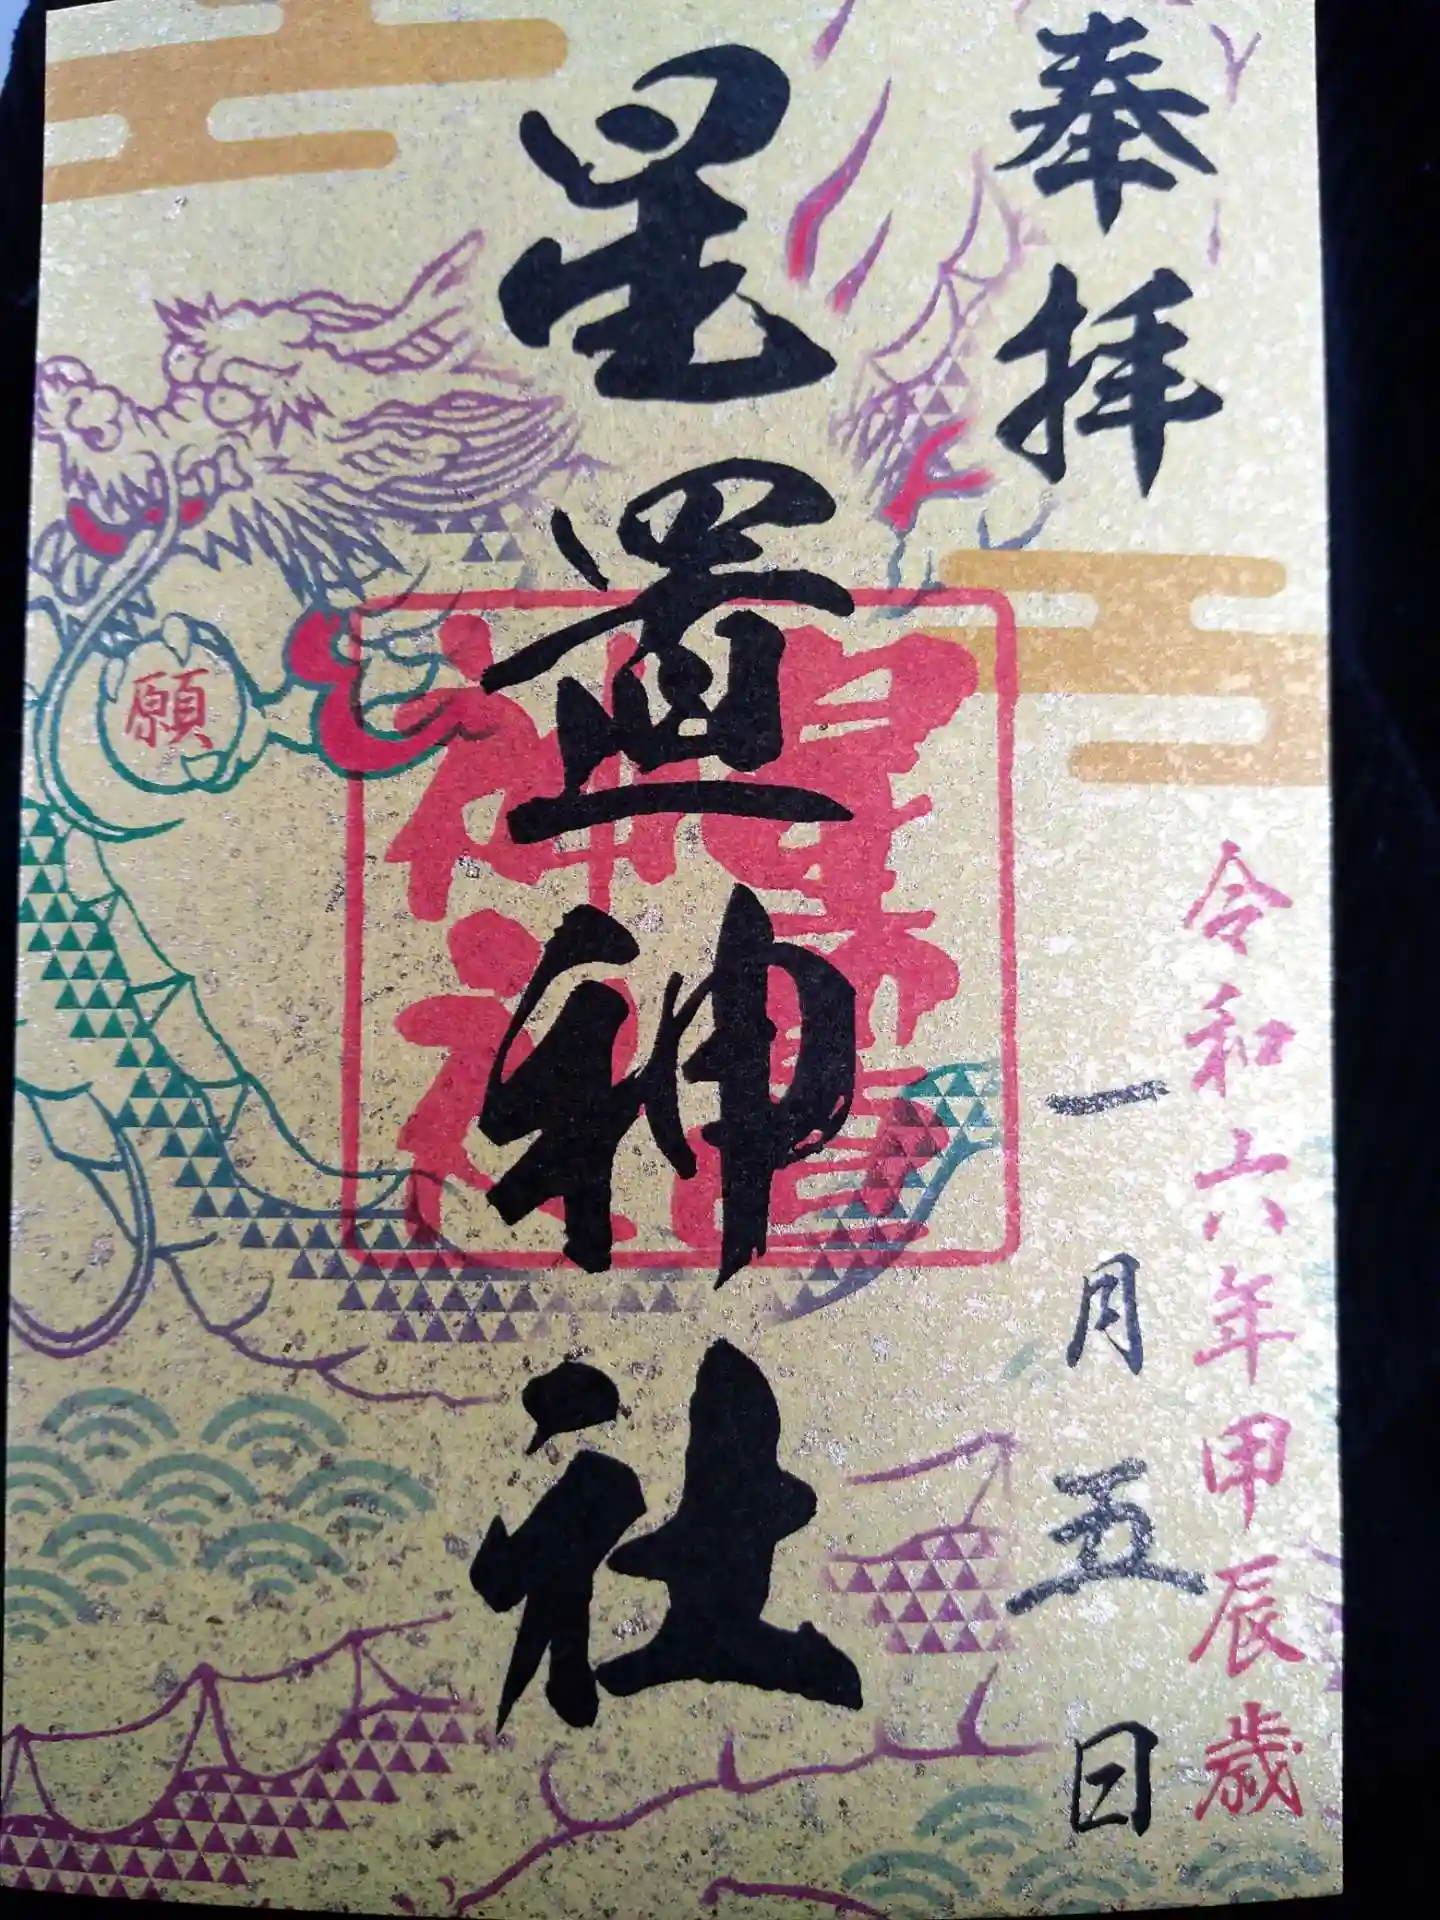 奉拝
令和六年甲辰歳
一月五日
星置神社
願